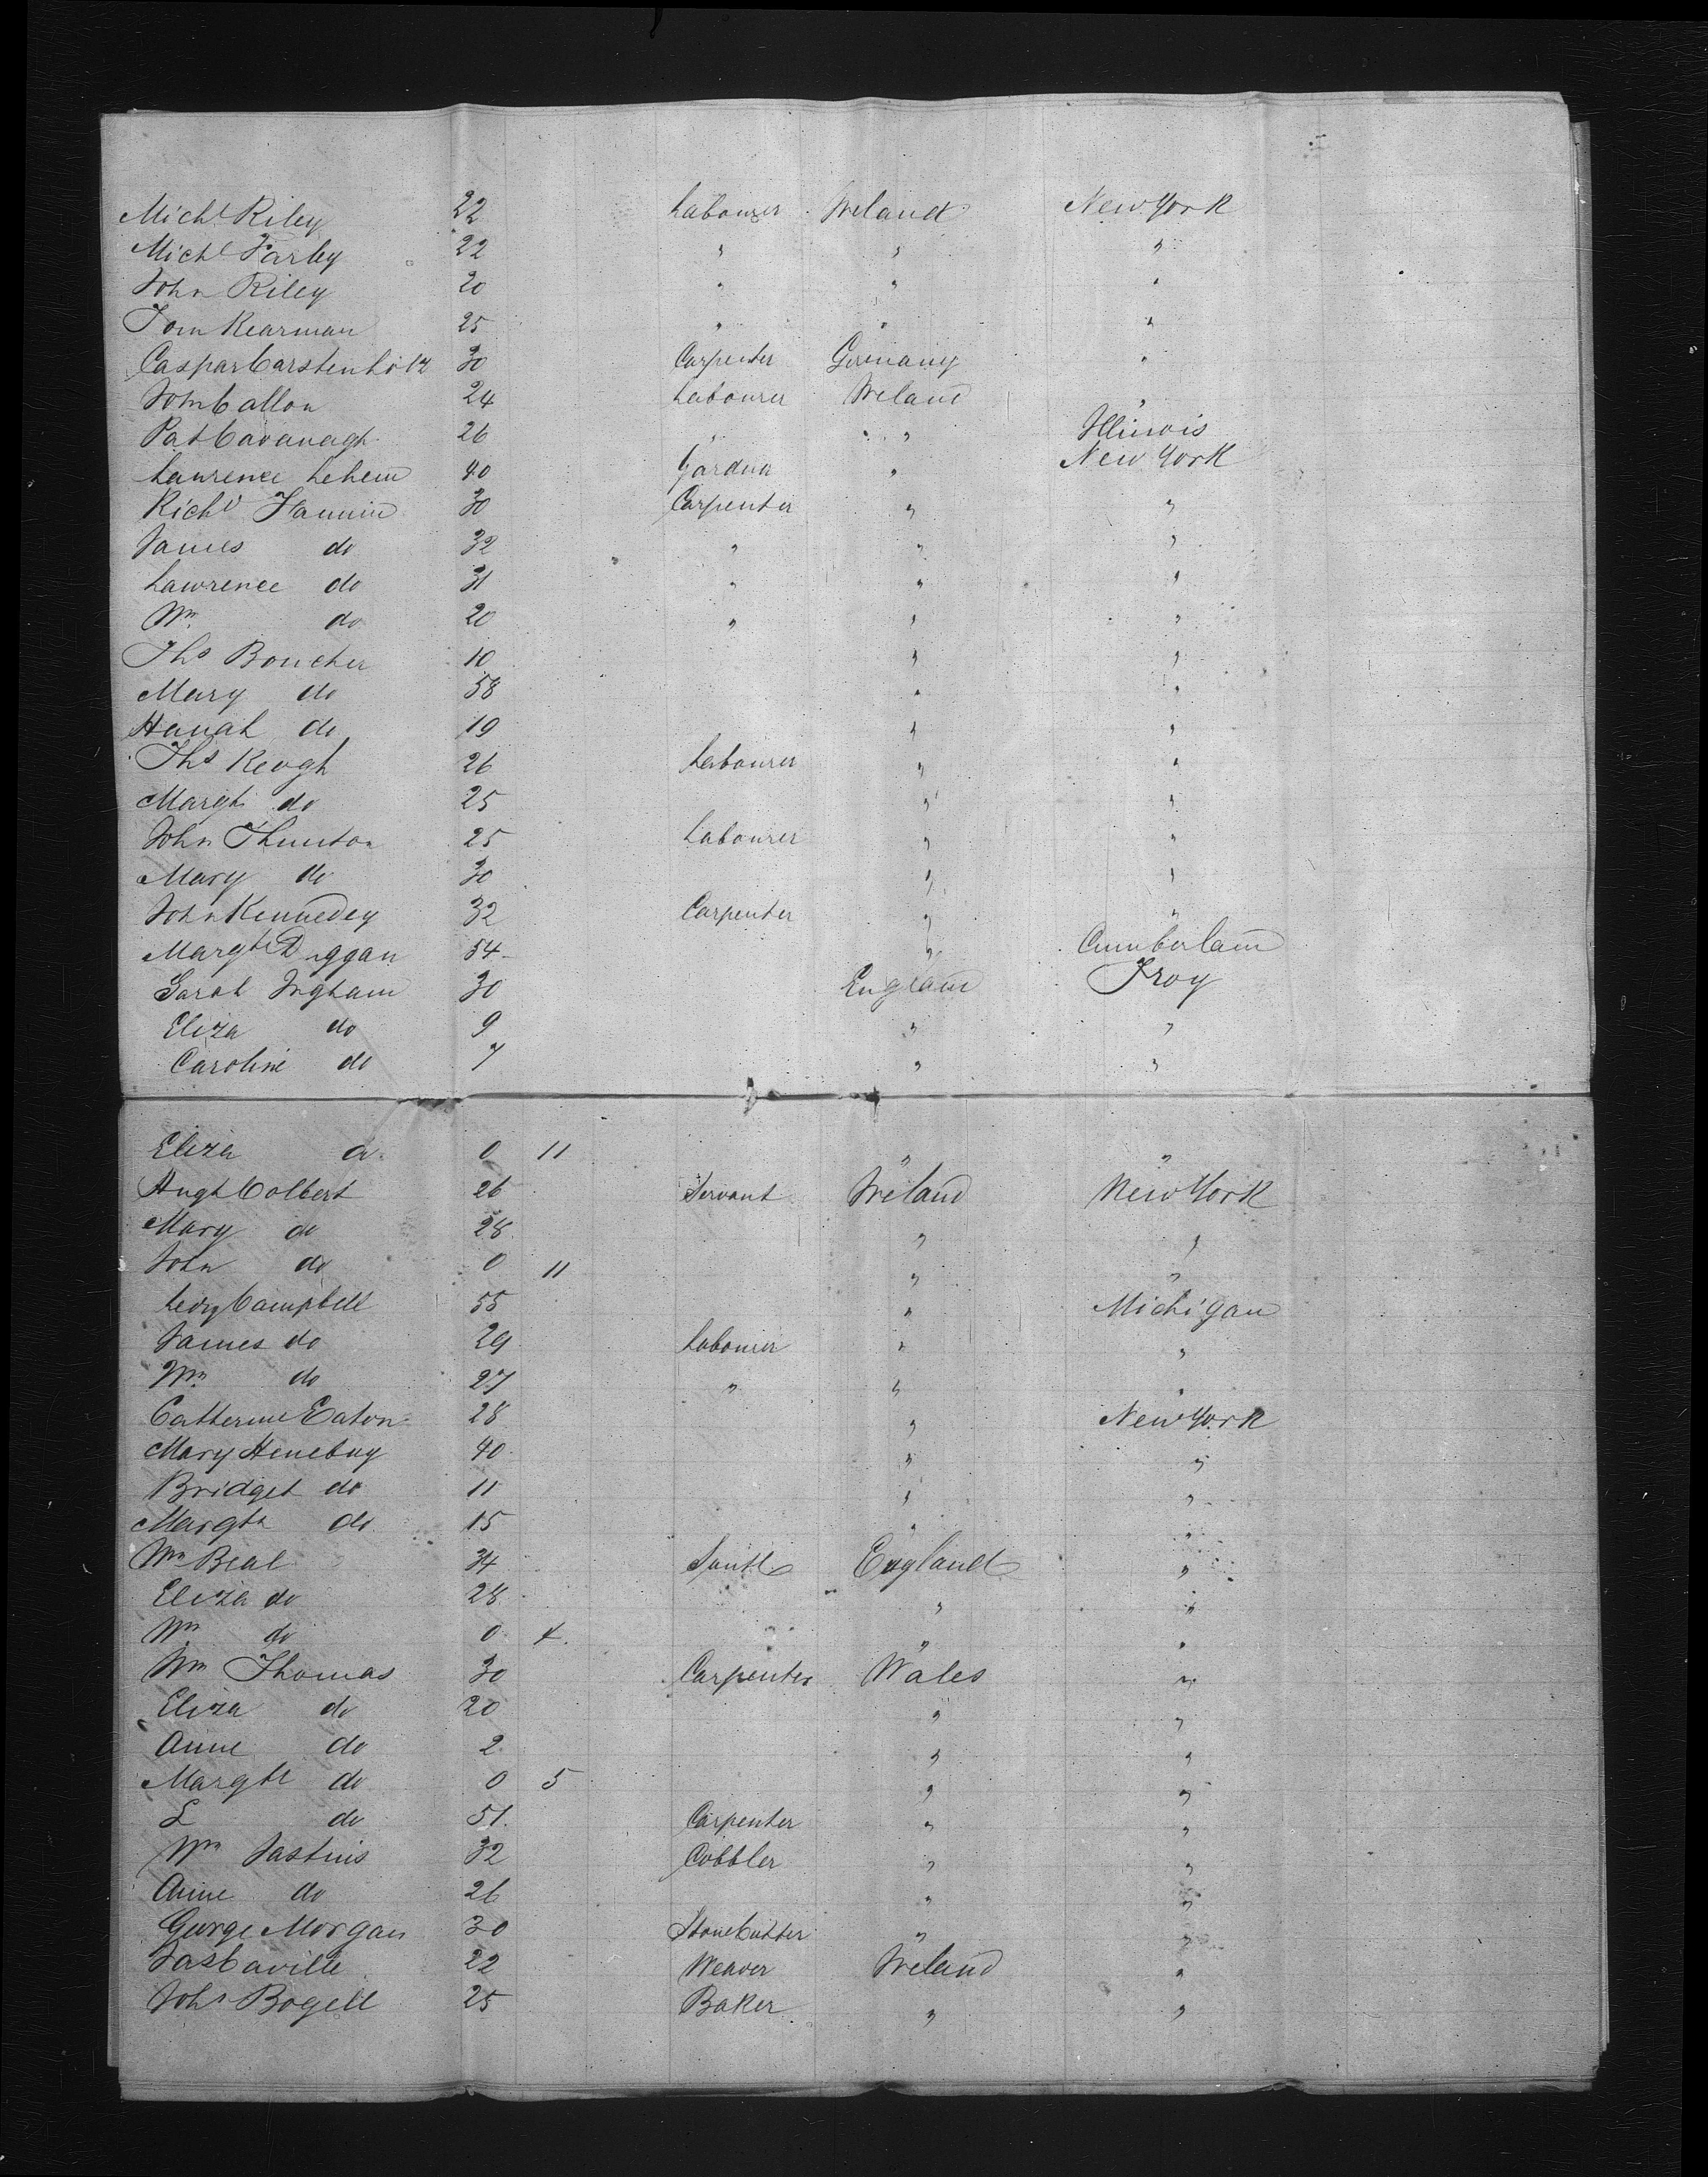 Michl Riley 22 Labourer Ireland New York
Michl Farley 22 " " "
John Riley 20 " " "
Tom Kearman 25 " " "
Caspar Carstenholz 30 Carpenter Germany "
John Callon 24 Labourer Ireland "
Pat Cavanagh 26 " " Illinois
Lawrence Lehem 40 Gardner " New York
Richd Fannin 30 Carpenter " "
James do 32 " " "
Lawrence do 31 " " "
Wm do 20 " " "
Ths Boucher 10 " "
Mary do 58 " "
Hanah do 19 " "
Ths Keogh 26 Labourer " "
Margt do 25 " "
John Thunton 25 Labourer " "
Mary do 30 " "
John Kennedey 32 Carpenter " "
Margt Duggan 54 " Cumberland
Sarah Ingham 30 England Troy
Eliza do 9 " "
Caroline do 7 " "
Eliza do 0 11 " "
Hugh Colbert 26 Servant Ireland New York
Mary do 28 " "
John do 0 11 " "
Campbell 55 " Michigan
James do 29 Labourer " "
Wm do 27 " " "
Catherine Eaton 28 " New York
Mary Henebuy 40 " "
Bridget do 11 " "
Margt do 15 " "
Wm Beal 34 England "
Eliza do 28 " "
Wm do 0 4 " "
Wm Thomas 30 Carpenter Wales "
Eliza do 20 " "
Anne do 2 " "
Margt do 0 5 " "
L do 51 Carpenter " "
Wm Jastins 32 Cobbler " "
Anne do 26 " "
George Morgan 30 Stone Cutter " "
Jas Caville 22 Weaver Ireland "
John Bogell 25 Baker " "